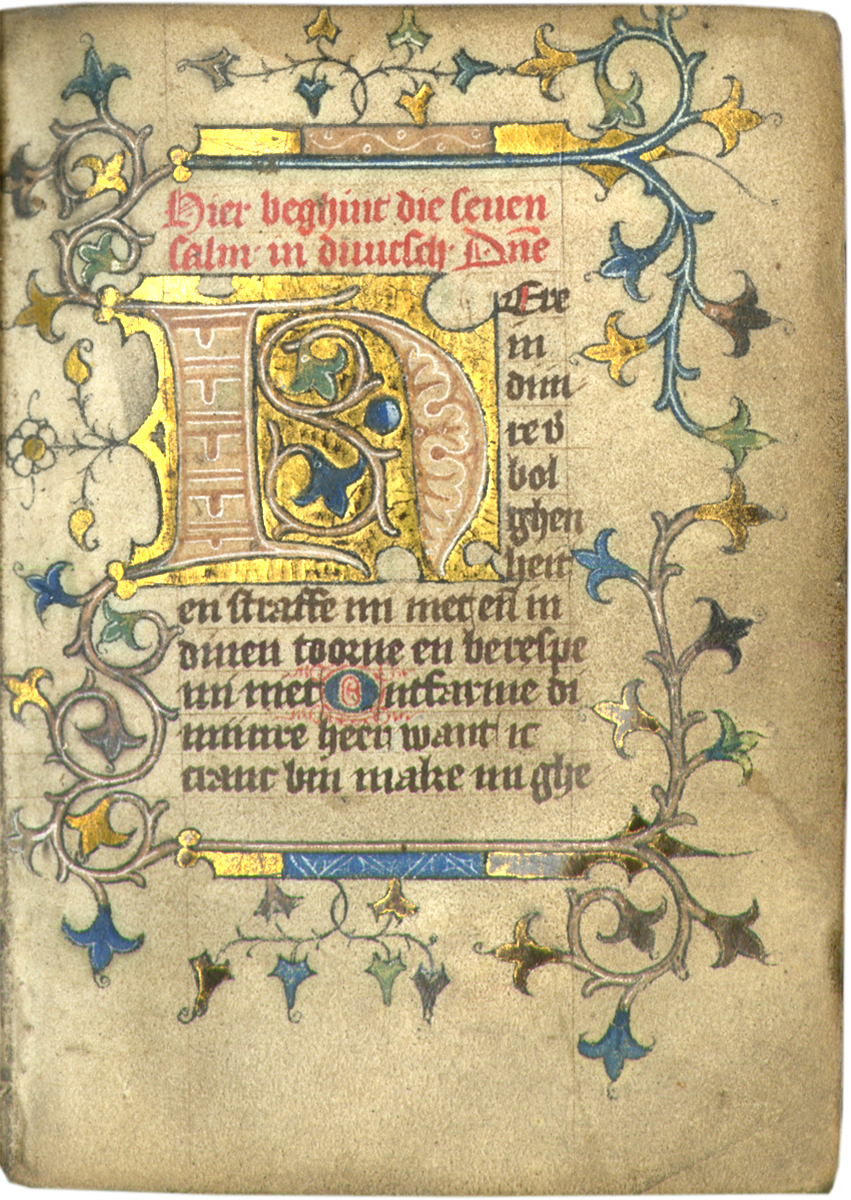 Hier beghint die seuen
salm in duutsch Dn̄e
HEre
in
dinre
re v
bol
ghen
heit
en straffe mi niet en̄ in
dinen toorne en berespe
mi niet Ontfarme di
miinre heere want ic
cranc bin make mi ghe